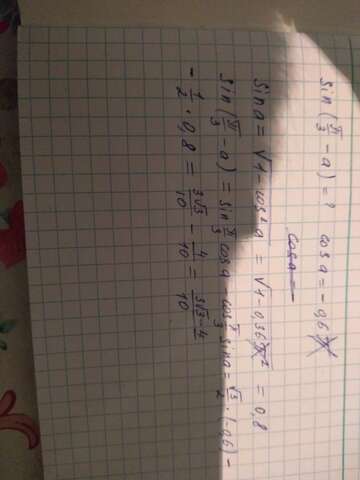 sin(π/3 - a) = ? cos a = -0,6
cos a =
sin a = √1 - cos² a = √1 - 0,36 = 0,8
sin(π/3 - a) = sin π/3 cos a - cos π/3 sin a = √3/2 · (-0,6) -
- 1/2 · 0,8 = 3√3/10 - 4/10 = 3√3-4/10